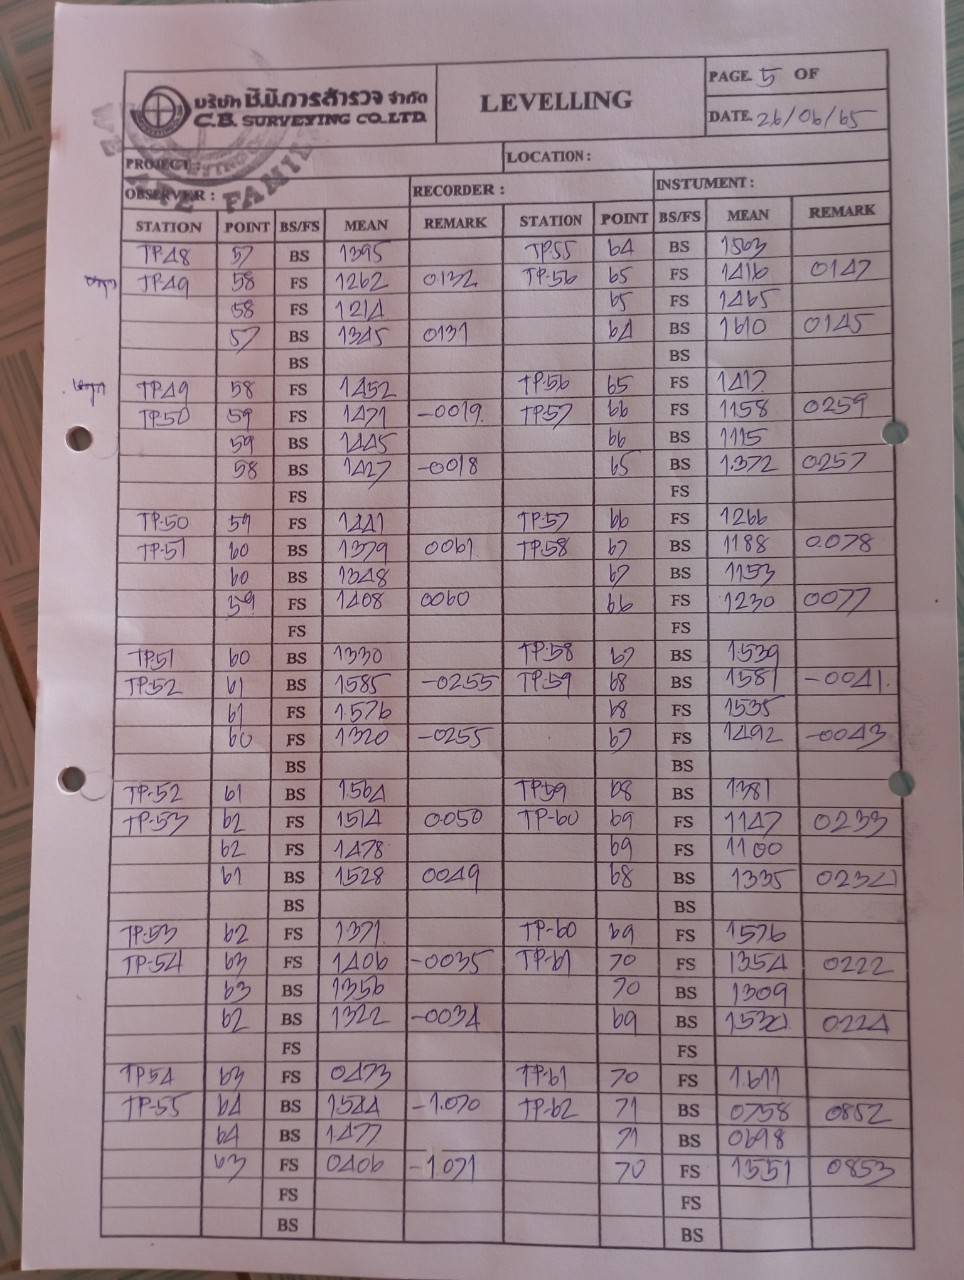 บริษัท ซี.บี.การสำรวจ จำกัด
C.B. SURVEYING CO.,LTD.
LEVELLING
PAGE. 5 OF
DATE. 26/06/65
PROJECT :
LOCATION :
OBSERVER :
RECORDER :
INSTUMENT :
STATION POINT BS/FS MEAN REMARK STATION POINT BS/FS MEAN REMARK
TP.48 57 BS 1395 TP.55 64 BS 1563
TP.49 58 FS 1262 0132 TP.56 65 FS 1416 0147
58 FS 1214 65 FS 1465
57 BS 1345 0131 64 BS 1610 0145
BS BS
TP.49 58 FS 1452 TP.56 65 FS 1417
TP.50 59 FS 1471 -0019 TP.57 66 FS 1158 0259
59 BS 1445 66 BS 1115
58 BS 1427 -0018 65 BS 1.372 0257
FS FS
TP.50 59 FS 1441 TP.57 66 FS 1266
TP.51 60 BS 1379 0061 TP.58 67 BS 1188 0.078
60 BS 1348 67 BS 1153
59 FS 1408 0060 66 FS 1230 0077
FS FS
TP.51 60 BS 1330 TP.58 67 BS 1.539
TP.52 61 BS 1585 -0255 TP.59 68 BS 1581 -0041.
61 FS 1.576 68 FS 1535
60 FS 1320 -0255 67 FS 1492 -0043
BS BS
TP-52 61 BS 1.564 TP.59 68 BS 1381
TP-53 62 FS 1514 0.050 TP-60 69 FS 1147 0233
62 FS 1478 69 FS 1100
61 BS 1528 0049 68 BS 1335 0234
BS BS
TP.53 62 FS 1371 TP-60 69 FS 1576
TP-54 63 FS 1406 -0035 TP-61 70 FS 1354 0222
63 BS 1356 70 BS 1309
62 BS 1322 -0034 69 BS 1534 0224
FS FS
TP.54 63 FS 0473 TP.61 70 FS 1.611
TP-55 64 BS 1544 -1.070 TP-62 71 BS 0758 0852
64 BS 1.477 71 BS 0698
63 FS 0406 -1.071 70 FS 1551 0853
FS FS
BS BS